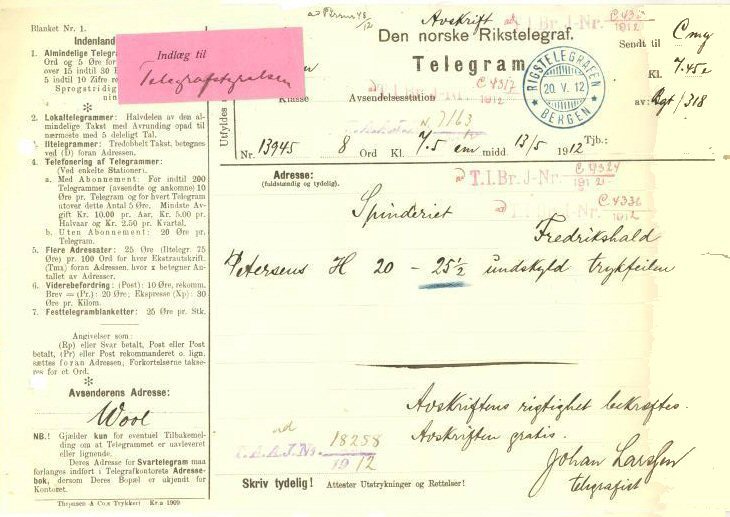 Blanket Nr. 1.
Indenland
1. Almindelige Telegram
Ord og 5 Øre for
over 15 indtil 30
5 indtil 10 Zifre re
Sprogstridig
ning
*
2. Lokaltelegrammer: Halvdelen av den al-
mindelige Takst med Avrunding opad til
nærmeste med 5 delelige Tal.
3. Iltelegrammer: Tredobbelt Takst, betegnes
ved (D) foran Adressen.
4. Telefonering af Telegrammer:
(Ved enkelte Stationer).
a. Med Abonnement: For indtil 200
Telegrammer (avsendte og ankomne) 10
Øre pr. Telegram og for hvert Telegram
utover dette Antal 5 Øre. Mindste Av-
gift Kr. 10.00 pr. Aar, Kr. 5.00 pr.
Halvaar og Kr. 2.50 pr. Kvartal.
b. Uten Abonnement: 20 Øre pr.
Telegram.
5. Flere Adressater: 25 Øre (Iltelegr. 75
Øre) pr. 100 Ord for hver Ekstrautskrift.
(Tmx) foran Adressen, hvor x betegner An-
tallet av Adresser.
6. Viderebefordring: (Post): 10 Øre, rekomm.
Brev = (Pr.): 20 Øre; Ekspresse (Xp): 30
Øre pr. Kilom.
7. Festtelegramblanketter: 25 Øre pr. Stk.
Angivelser som:
(Rp) eller Svar betalt, Post eller Post
betalt, (Pr) eller Post rekommanderet o. lign.
sættes foran Adressen, Forkortelserne takse-
res for et Ord.
*
Avsenderens Adresse:
Wool
NB.! Gjælder kun for eventuel Tilbakemel-
ding om at Telegrammet er uavleveret
eller lignende.
Deres Adresse for Svartelegram maa
forlanges indført i Telegrafkontorets Adresse-
bok, dersom Deres Bopæl er ukjendt for
Kontoret.
Thronsen & Co.s Trykkeri Kr.a 1909.
Indlæg til
Telegrafstyrelsen
Avskrift
ad T.I.Br.J-Nr. 1912
Den norske Rikstelegraf.
Telegram
Sendt til Cmg
Kl. 7.45e
av: Rgt/318
RIGSTELEGRAFEN
20. V. 12
BERGEN
Utfyldes
Klasse
Avsendelsesstation
ad T.I.Br.J-Nr. C.4317 1912
N. 7163
Nr. 13945 8 Ord Kl. 7.5 em midd. 13/5 1912 Tjb.:
Adresse:
(fuldstændig og tydelig).
ad T.I.Br.J-Nr. C.4324 1912
ad T.I.Br.J-Nr. C.4336 1912
Spinderiet
Fredrikshald
Petersens H 20 – 25½ undskyld trykfeilen
Avskriftens rigtighet bekræftes.
Avskriften gratis.
Johan Larssen
telegrafist
ad
18258
1912
Skriv tydelig! Attester Utstrykninger og Rettelser!